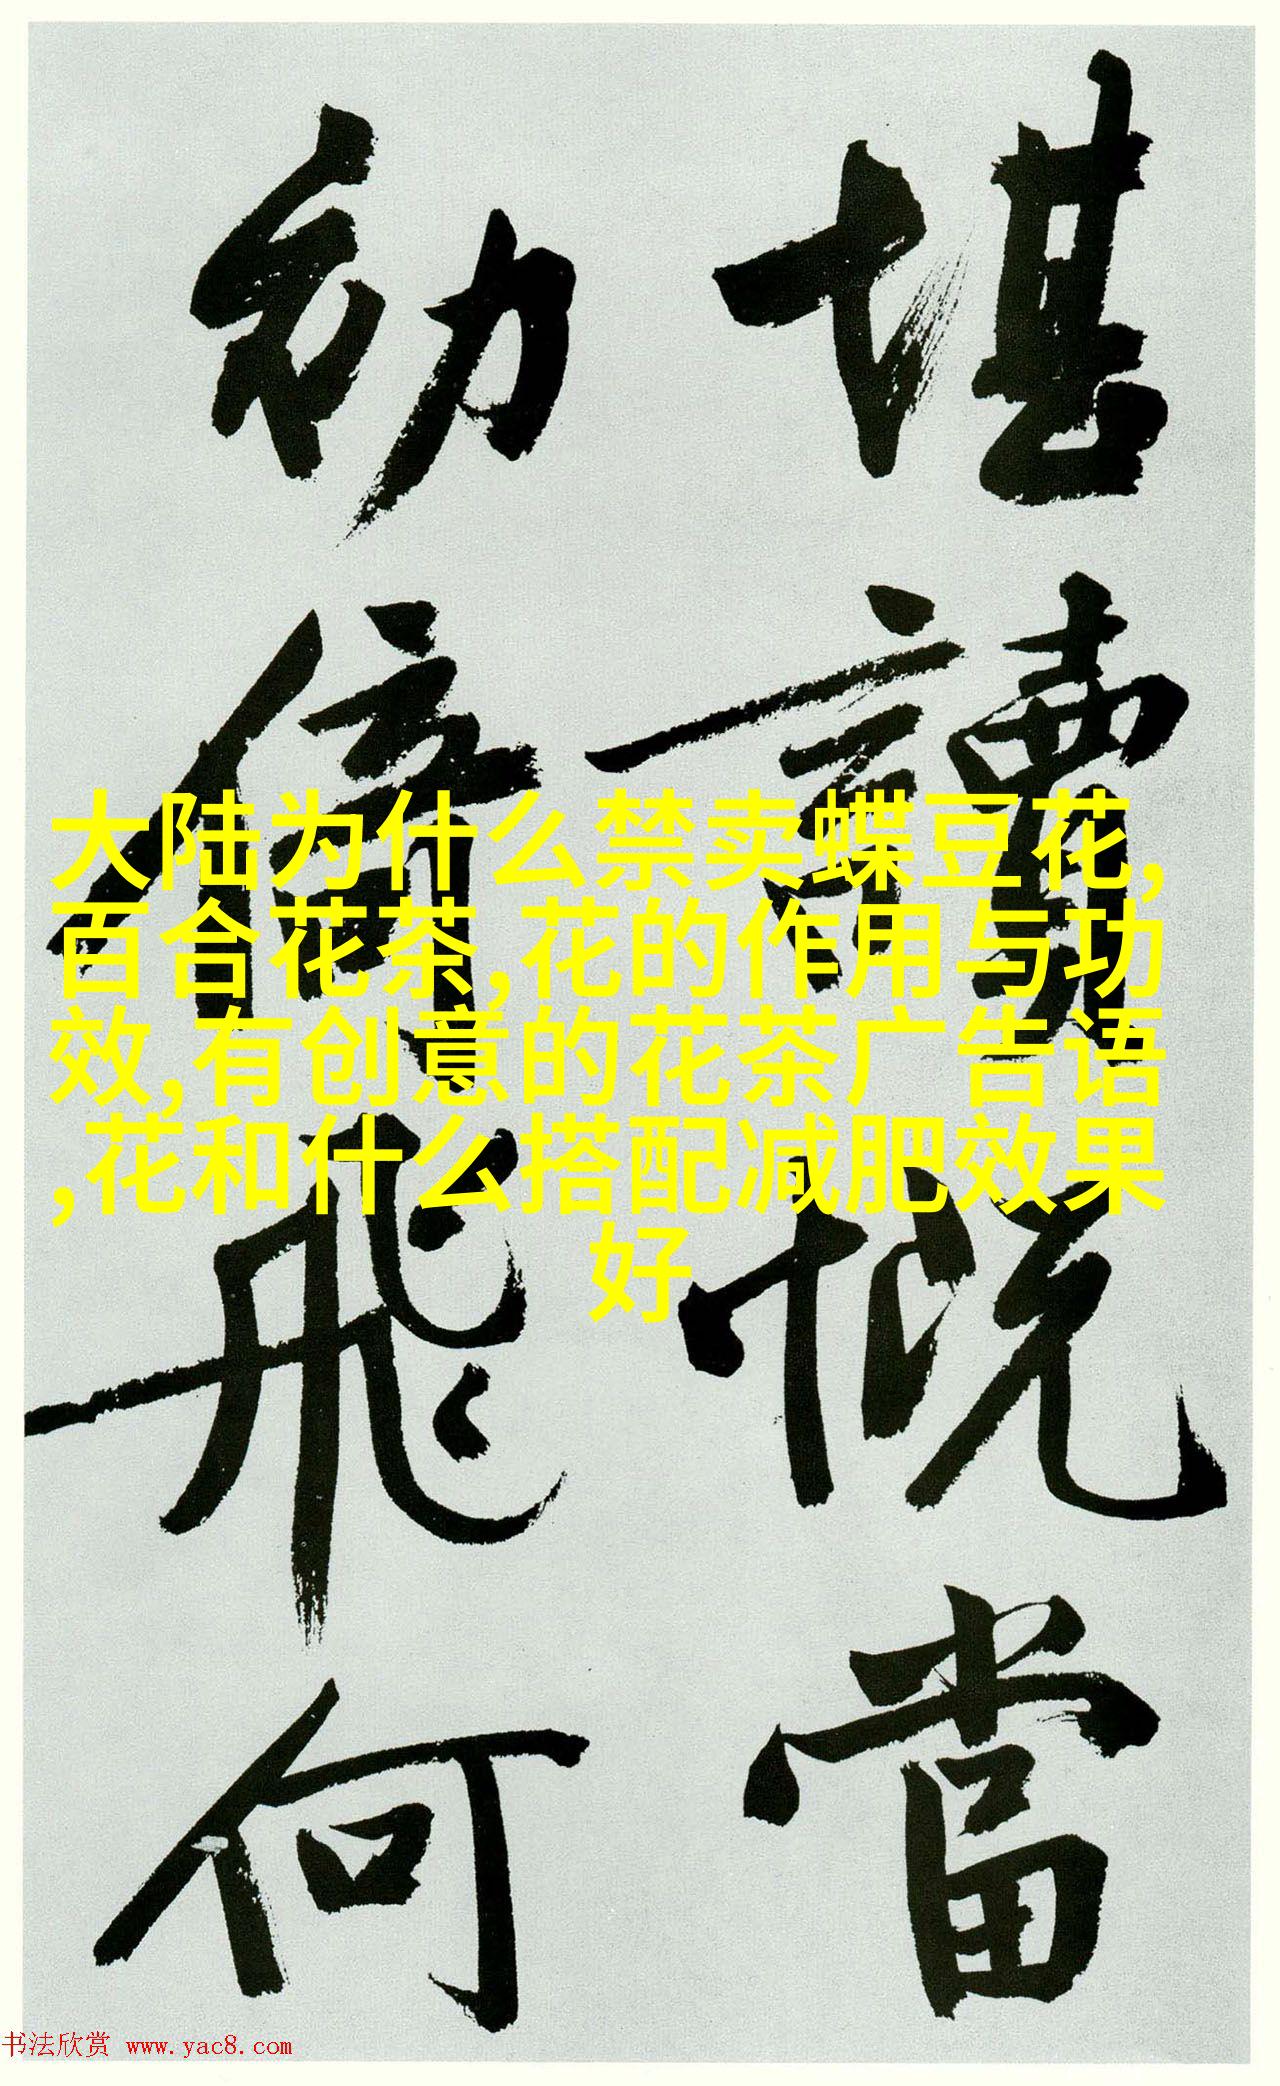 堪讀慨當
幼倚飛何
大陆为什么禁卖蝶豆花,
百合花茶,花的作用与功
效,有创意的花茶广告语
,花和什么搭配减肥效果
好
书法欣赏 www.yac8.com